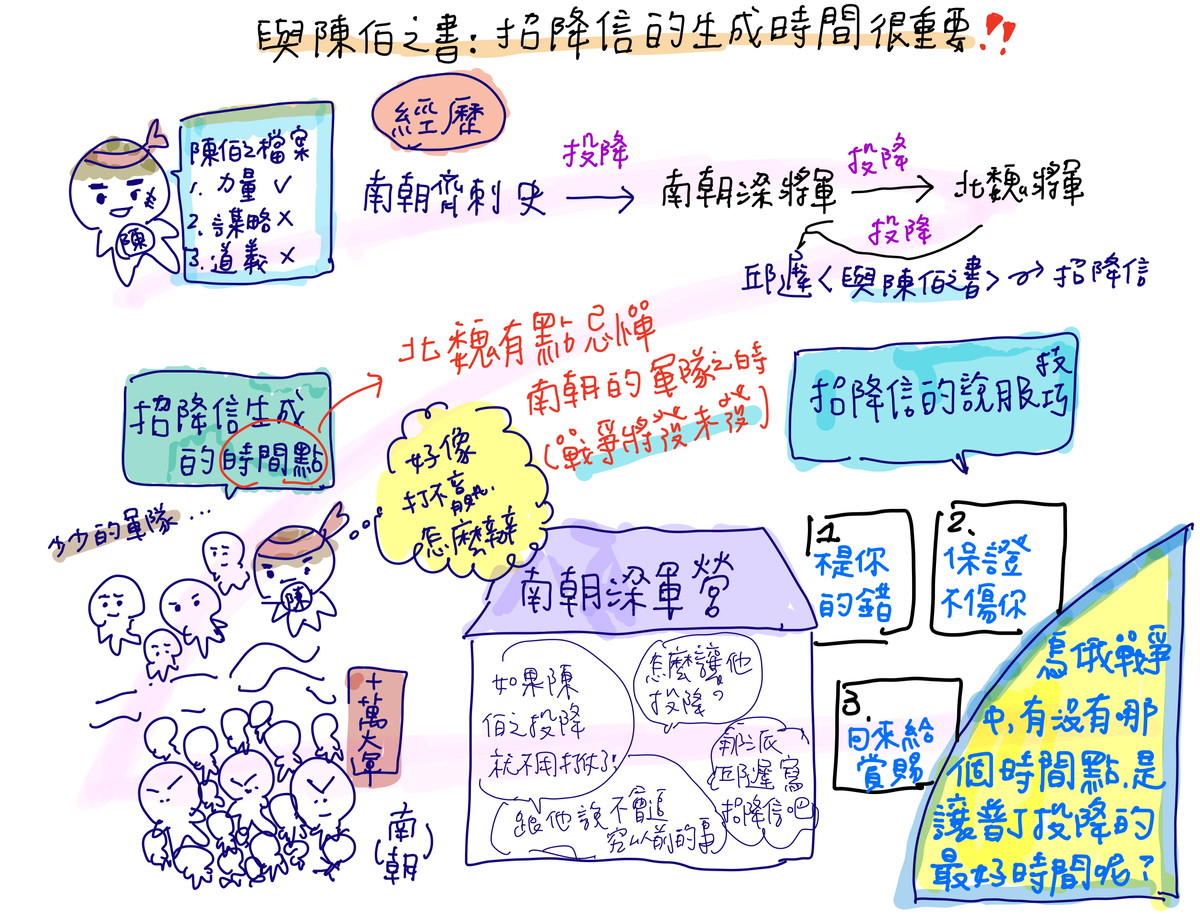 與陳伯之書：招降信的生成時間很重要!!
陳伯之檔案
1. 力量 ✓
2. 謀略 ×
3. 道義 ×
陳
經歷
南朝齊刺史
投降
南朝梁將軍
投降
北魏將軍
投降
邱遲〈與陳伯之書〉
招降信
招降信生成
的時間點
北魏有點忌憚
南朝的軍隊之時
(戰爭將發未發)
招降信的說服技巧
少少的軍隊…
陳
好像
打不贏,
怎麼辦
十萬大軍
(南朝)
南朝梁軍營
如果陳
伯之投降
就不用打仗了!
怎麼讓他
投降?
那派
邱遲寫
招降信吧
跟他說不會追
究以前的事
1.
不是你
的錯
2.
保證
不傷你
3.
回來給
賞賜
烏俄戰爭
中,有沒有哪
個時間點,是
讓普丁投降的
最好時間呢?